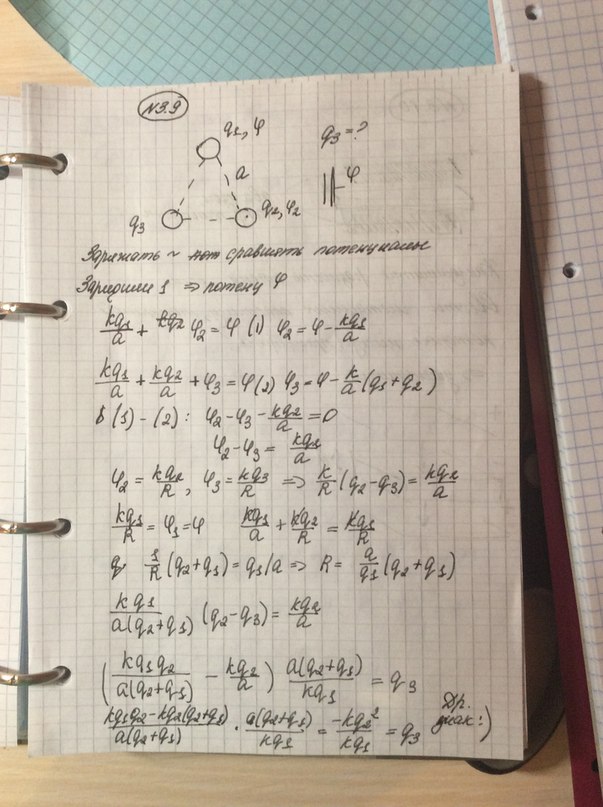 N3.9
q₁, φ
q₃ = ?
a
φ
q₃
q₂, φ₂
Заряжать ~ сравнять потенциалы
Зарядили 1 ⇒ потенц φ
kq₁/a + φ₂ = φ (1) φ₂ = φ - kq₁/a
kq₁/a + kq₂/a + φ₃ = φ (2) φ₃ = φ - k/a (q₁ + q₂)
(1) - (2): φ₂ - φ₃ - kq₂/a = 0
φ₂ - φ₃ = kq₂/a
φ₂ = kq₂/R, φ₃ = kq₃/R ⇒ k/R (q₂ - q₃) = kq₂/a
kq₁/R = φ₁ = φ kq₁/a + kq₂/R = kq₁/R
1/R (q₂ + q₁) = q₁/a ⇒ R = a/q₁ (q₂ + q₁)
kq₁/a(q₂ + q₁) (q₂ - q₃) = kq₂/a
(kq₁q₂/a(q₂ + q₁) - kq₂/a) a(q₂ + q₁)/kq₁ = q₃
kq₁q₂ - kq₂(q₂ + q₁)/a(q₂ + q₁) · a(q₂ + q₁)/kq₁ = -kq₂²/kq₁ = q₃
Др. знак :)